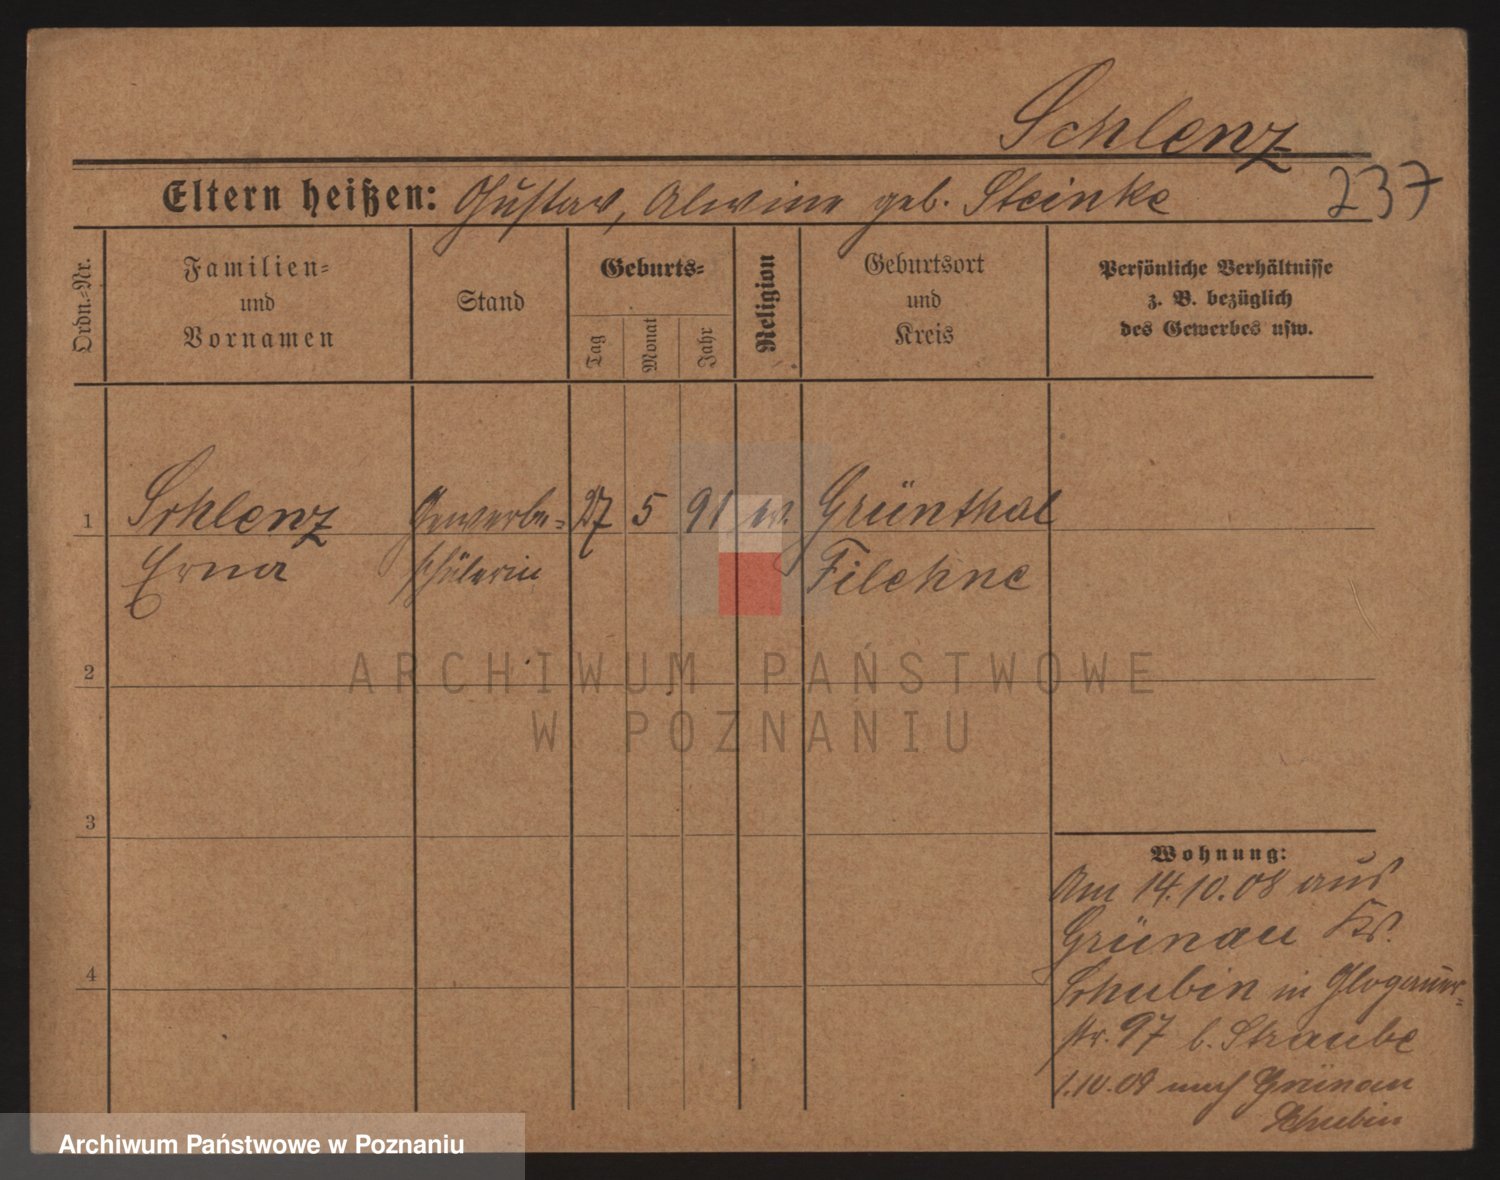 Schlenz
Eltern heißen: Gustav, Alwine geb. Steinke
237
Ordn.-Nr.
Familien-
und
Vornamen
Stand
Geburts-
Tag
Monat
Jahr
Religion
Geburtsort
und
Kreis
Persönliche Verhältnisse
z. B. bezüglich
des Gewerbes usw.
1
Schlenz
Erna
Gewerbe-
schülerin
27
5
91
ev.
Grünthal
Filehne
2
3
4
ARCHIWUM PAŃSTWOWE
W POZNANIU
Wohnung:
Am 14.10.08 aus
Grünau Kr.
Schubin in Glogauer-
str. 97 b. Straube
1.10.08 nach Grünau
Schubin
Archiwum Państwowe w Poznaniu